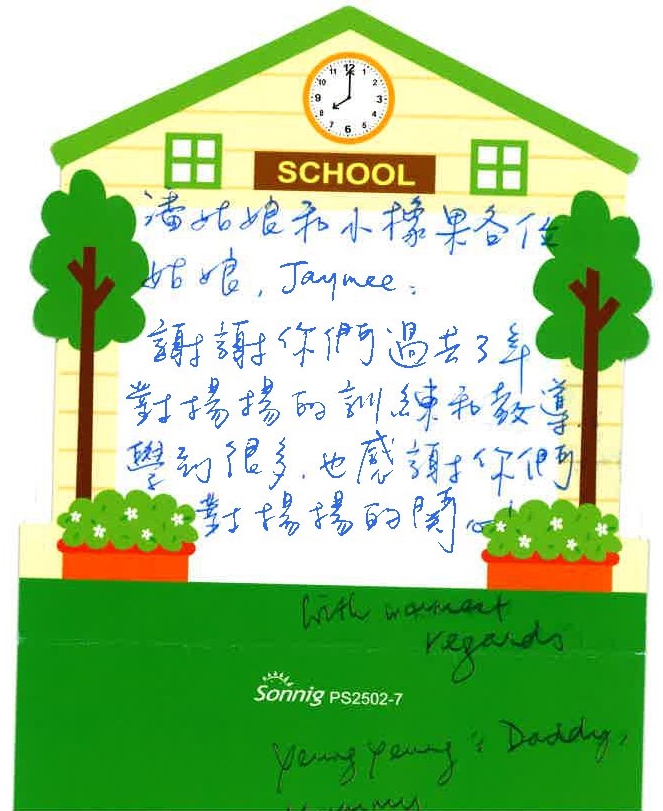 12
11 1
10 2
9 3
8 4
7 5
6
SCHOOL
潘姑娘和小橡果各位
姑娘, Jaymee:
謝謝你們過去3年
對揚揚的訓練和教導
學到很多,也感謝你們
對揚揚的關心!
With warmest
regards
Sonnig PS2502-7
Yeung Yeung's Daddy,
Mummy